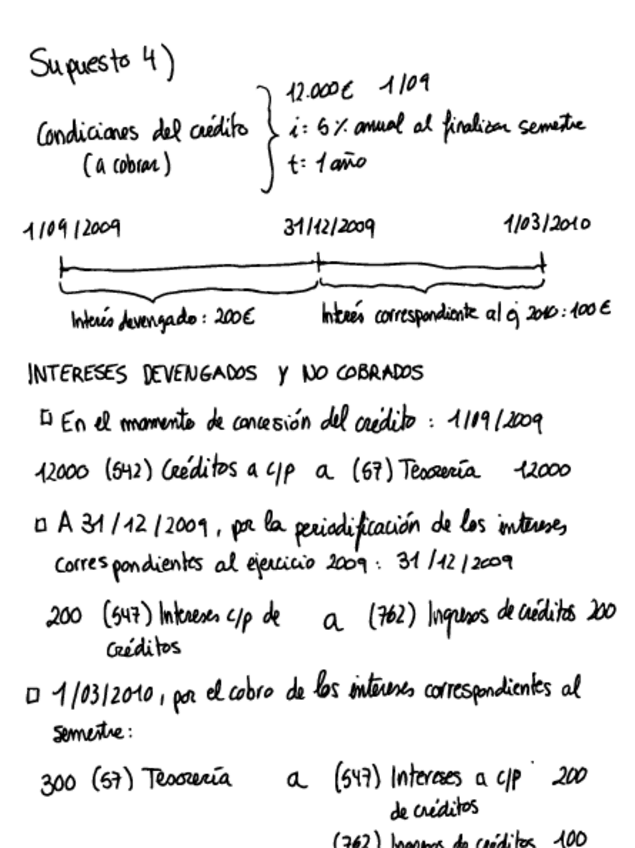 Supuesto 4)
12.000€ 1/09
Condiciones del crédito
(a cobrar)
i: 5% anual al finalizar semestre
t: 1 año
1/09/2009 31/12/2009 1/03/2010
Interés devengado: 200€ Interés correspondiente al ej 2010: 100€
INTERESES DEVENGADOS Y NO COBRADOS
En el momento de concesión del crédito: 1/09/2009
12000 (542) Créditos a c/p a (57) Tesorería 12000
A 31/12/2009, por la periodificación de los intereses
correspondientes al ejercicio 2009: 31/12/2009
200 (547) Intereses c/p de a (762) Ingresos de créditos 200
créditos
1/03/2010, por el cobro de los intereses correspondientes al
semestre:
300 (57) Tesorería a (547) Intereses a c/p 200
de créditos
(762) Ingresos de créditos 100